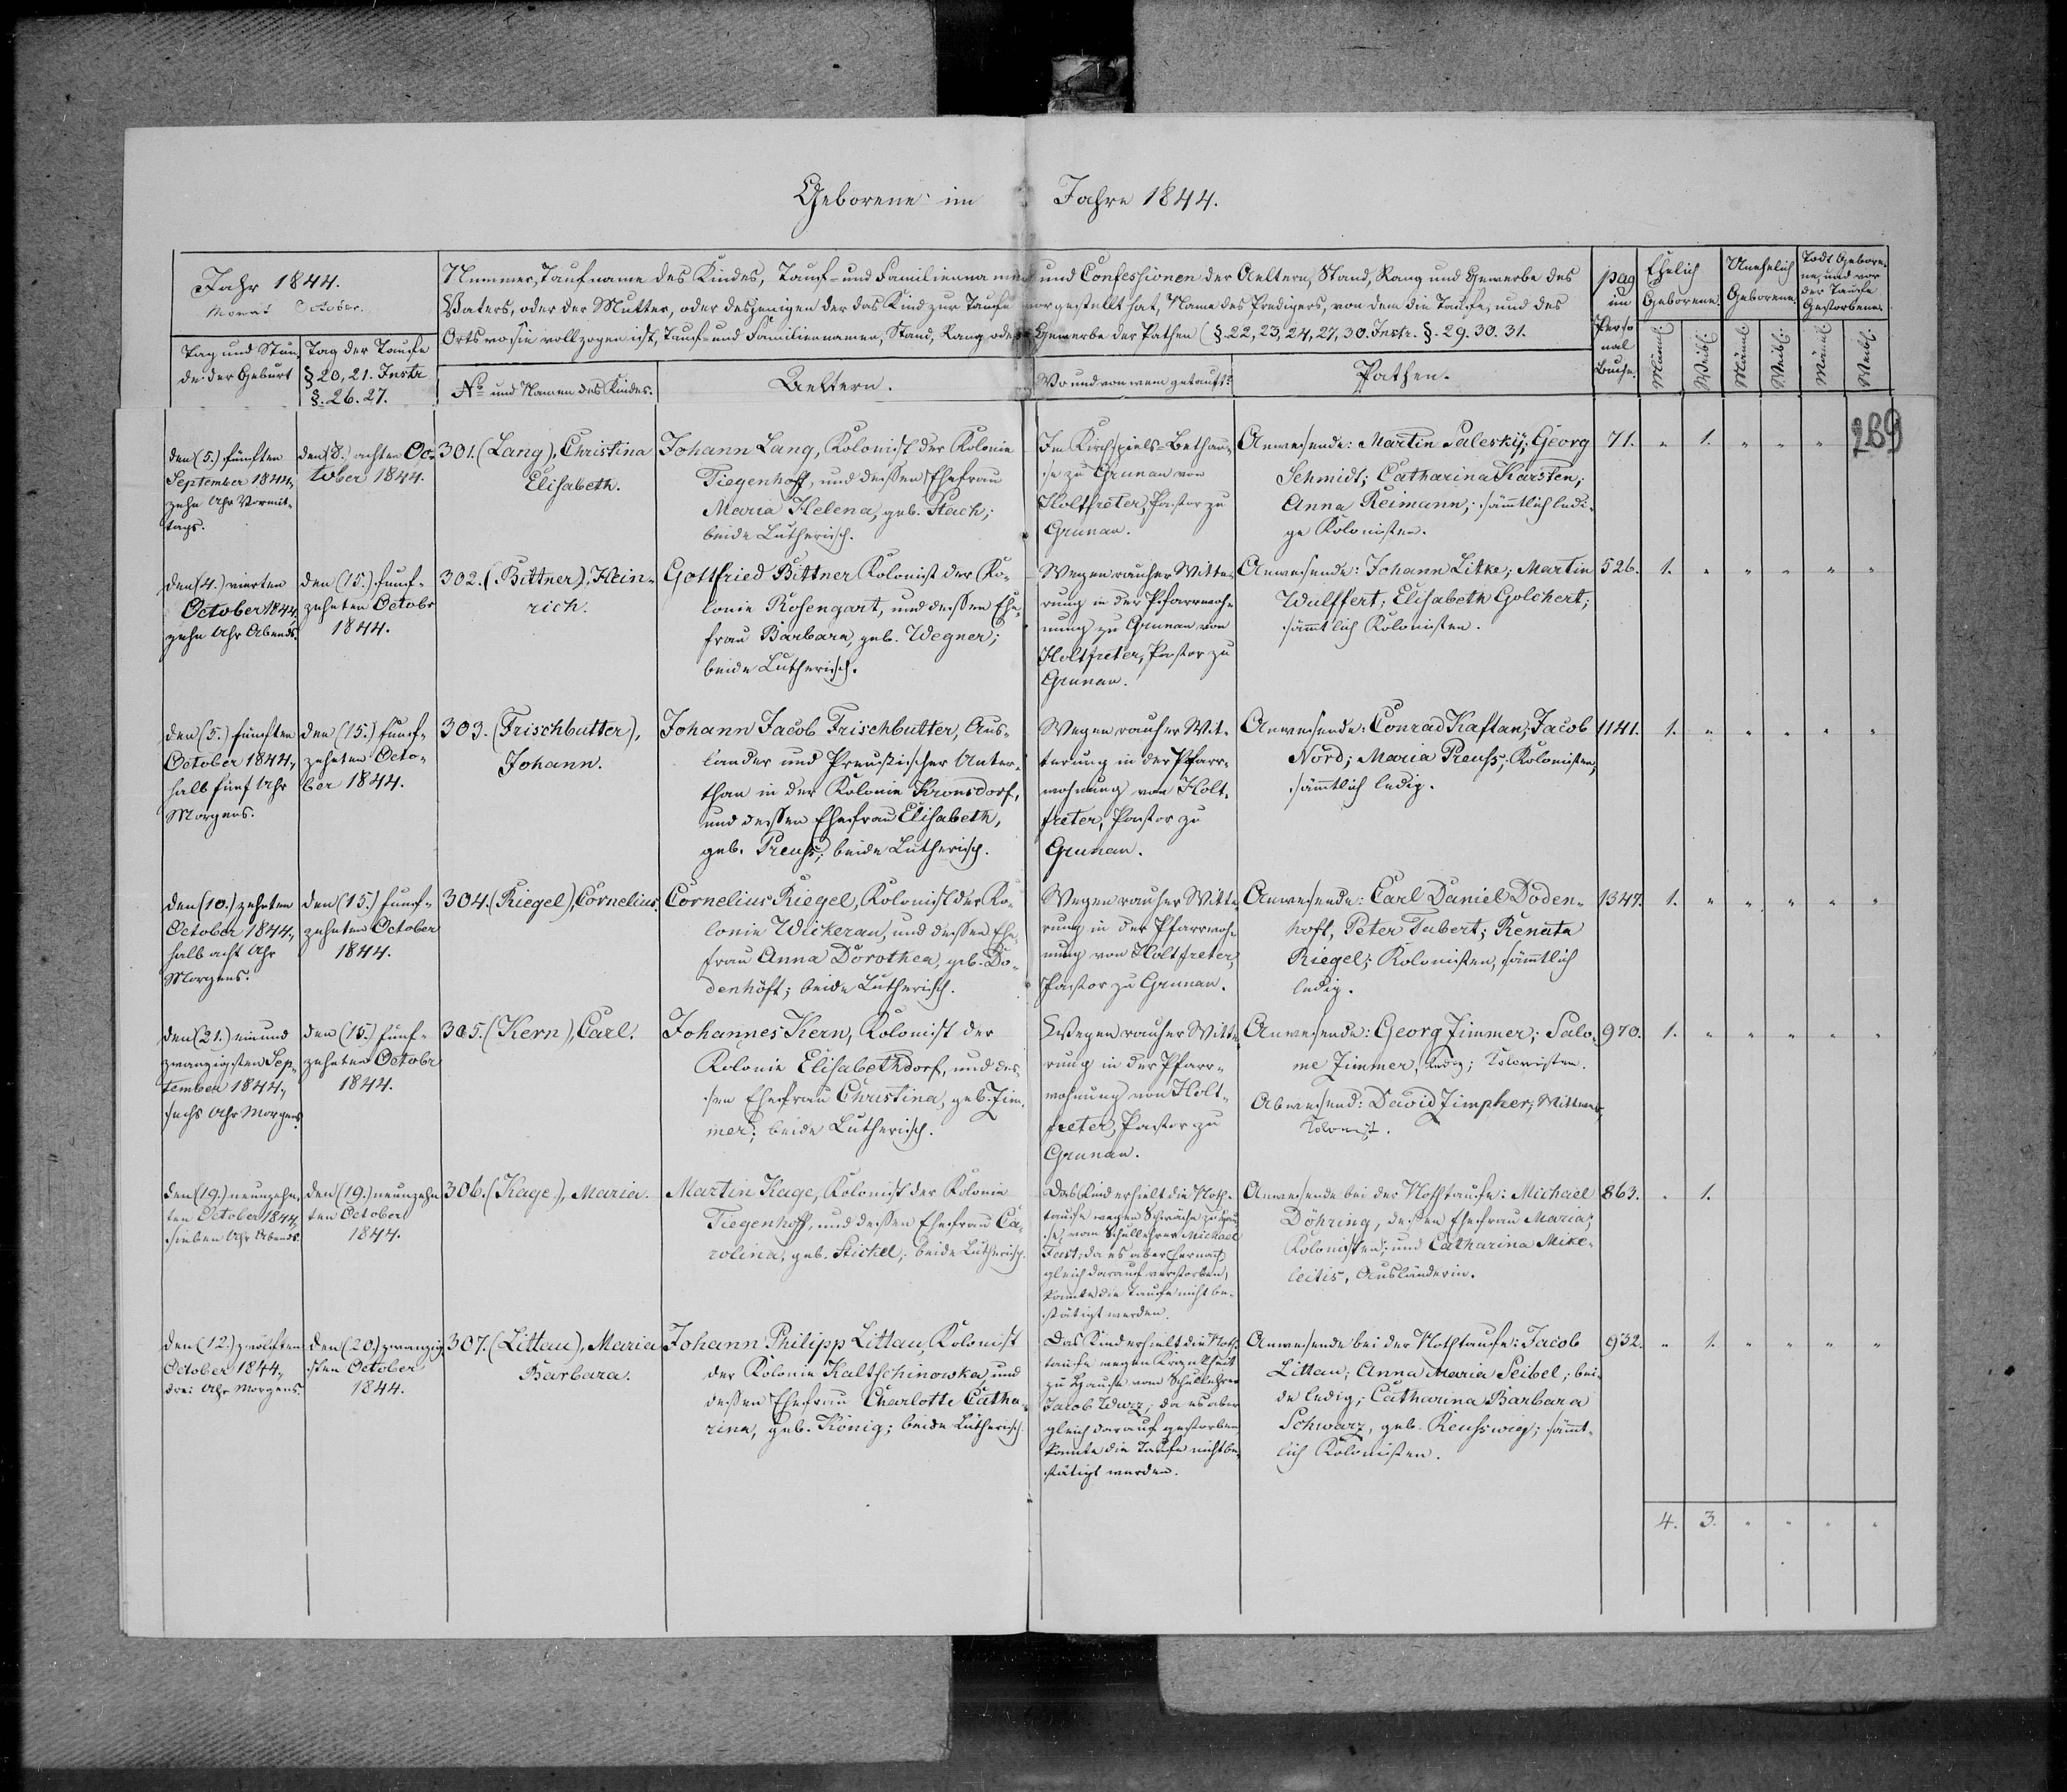 Geborene im Jahre 1844.
Jahr 1844.
Monat October.
Tag und Stun-
de der Geburt
Tag der Taufe
§ 20, 21. Instr
§. 26. 27.
Nummer, Taufname des Kindes, Tauf- und Familienname und Confessionen der Aeltern, Stand, Rang und Gewerbe des
Vaters, oder der Mutter, oder desjenigen der das Kind zur Taufe vorgestellt hat, Name des Predigers, von dem die Taufe, und des
Orts wo sie vollzogen ist, Tauf- und Familiennamen, Stand, Rang oder Gewerbe der Pathen (§. 22, 23, 24, 27, 30. Instr. §. 29. 30. 31.
No und Namen des Kindes.
Aeltern.
Wo und von wem getauft?
Pathen.
pag
im
Perso
nal
Buche.
Ehelich
Geborene.
Unehelich
Geborene.
Todt Gebore-
ne, und vor
der Taufe
Gestorbene.
Männl.
Weibl.
Männl.
Weibl.
Männl.
Weibl.
289
den (5.) fünften
September 1844,
zehn Uhr Vormit-
tags.
den (8.) achten Oc-
tober 1844.
301. (Lang), Christina
Elisabeth.
Johann Lang, Kolonist der Kolonie
Tiegenhoff, und dessen Ehefrau
Maria Helena, geb. Stach;
beide Lutherisch.
Im Kirchspiels-Bethau-
se zu Grunau von
Holtfreter, Pastor zu
Grunau.
Anwesende: Martin Salesky; Georg
Schmidt; Catharina Karsten;
Anna Reimann; sämmtlich ledi-
ge Kolonisten.
71. " 1. " " "
den (4.) vierten
October 1844,
zehn Uhr Abends.
den (15.) funf-
zehnten Octobr
1844.
302. (Bittner), Hein-
rich.
Gottfried Bittner Kolonist der Ko-
lonie Rosengart, und dessen Ehe-
frau Barbara, geb. Wegner;
beide Lutherisch.
Wegen rauher Witte-
rung in der Pfarrwoh-
nung zu Grunau von
Holtfreter, Pastor zu
Grunau.
Anwesende: Johann Litke; Martin
Wulffert; Elisabeth Golchert;
sämmtlich Kolonisten.
526. 1. " " " " "
den (5.) fünften
October 1844,
halb fünf Uhr
Morgens.
den (15.) funf-
zehnten Octo-
ber 1844.
303. (Frischbutter),
Johann.
Johann Jacob Frischbutter, Aus-
länder und Preussischer Unter-
than in der Kolonie Kronsdorf,
und dessen Ehefrau Elisabeth,
geb. Preuss; beide Lutherisch.
Wegen rauher Wit-
terung in der Pfarr-
wohnung von Holt-
freter, Pastor zu
Grunau.
Anwesende: Conrad Kaftan; Jacob
Nord; Maria Preuss; Kolonisten,
sämmtlich ledig.
1141. 1. " " " " "
den (10.) zehnten
October 1844,
halb acht Uhr
Morgens.
den (15.) funf-
zehnten October
1844.
304. (Riegel), Cornelius.
Cornelius Riegel, Kolonist der Ko-
lonie Wickerau, und dessen Ehe-
frau Anna Dorothea, geb. Do-
denhöft; beide Lutherisch.
Wegen rauher Witte-
rung in der Pfarrwoh-
nung von Holtfreter,
Pastor zu Grunau.
Anwesende: Carl Daniel Doden-
höft, Peter Tabert; Renata
Riegel; Kolonisten, sämmtlich
ledig.
1347. 1. " " " " "
den (21.) ein und
zwanzigsten Sep-
tember 1844,
sechs Uhr Morgens.
den (15.) funf-
zehnten Octobr
1844.
305. (Kern), Carl.
Johannes Kern, Kolonist der
Kolonie Elisabethdorf, und des-
sen Ehefrau Christina, geb. Zim-
mer; beide Lutherisch.
Wegen rauher Witte-
rung in der Pfarr-
wohnung von Holt-
freter, Pastor zu
Grunau.
Anwesende: Georg Zimmer; Salo-
me Zimmer, ledig; Kolonisten.
Abwesend: David Zimpher, Wittwer,
Kolonist.
970. 1. " " " " "
den (19.) neunzehn-
ten October 1844,
sieben Uhr Abends.
den (19.) neunzehn
ten October
1844.
306. (Kage), Maria.
Martin Kage, Kolonist der Kolonie
Tiegenhoff, und dessen Ehefrau Ca-
rolina, geb. Stickel; beide Lutherisch.
Das Kind erhielt die Noth-
taufe wegen Schwäche zu Hau-
se, vom Schullehrer Michael
Fast; da es aber hernach
gleich darauf verstorben,
konnte die Taufe nicht be-
stätigt werden.
Anwesende bei der Nothtaufe: Michael
Döhring, dessen Ehefrau Maria;
Kolonisten; und Catharina Mike-
leitis, Ausländerin.
863. " 1.
den (12.) zwölften
October 1844,
drei Uhr Morgens.
den (20.) zwanzig
sten October
1844.
307. (Littau), Maria
Barbara.
Johann Philipp Littau, Kolonist
der Kolonie Kaltschinowka, und
dessen Ehefrau Charlotte Catha-
rina, geb. König; beide Lutherisch.
Das Kind erhielt die Noth-
taufe wegen Krankheit
zu Hause vom Schullehrer
Jacob Wurz; da es aber
gleich darauf gestorben
konnte die Taufe nicht be-
stätigt werden.
Anwesende bei der Nothtaufe: Jacob
Littau; Anna Maria Seibel; bei-
de ledig; Catharina Barbara
Schwarz, geb. Reusswig; sämmt-
lich Kolonisten.
932. " 1. " " " "
4. 3. " " " "